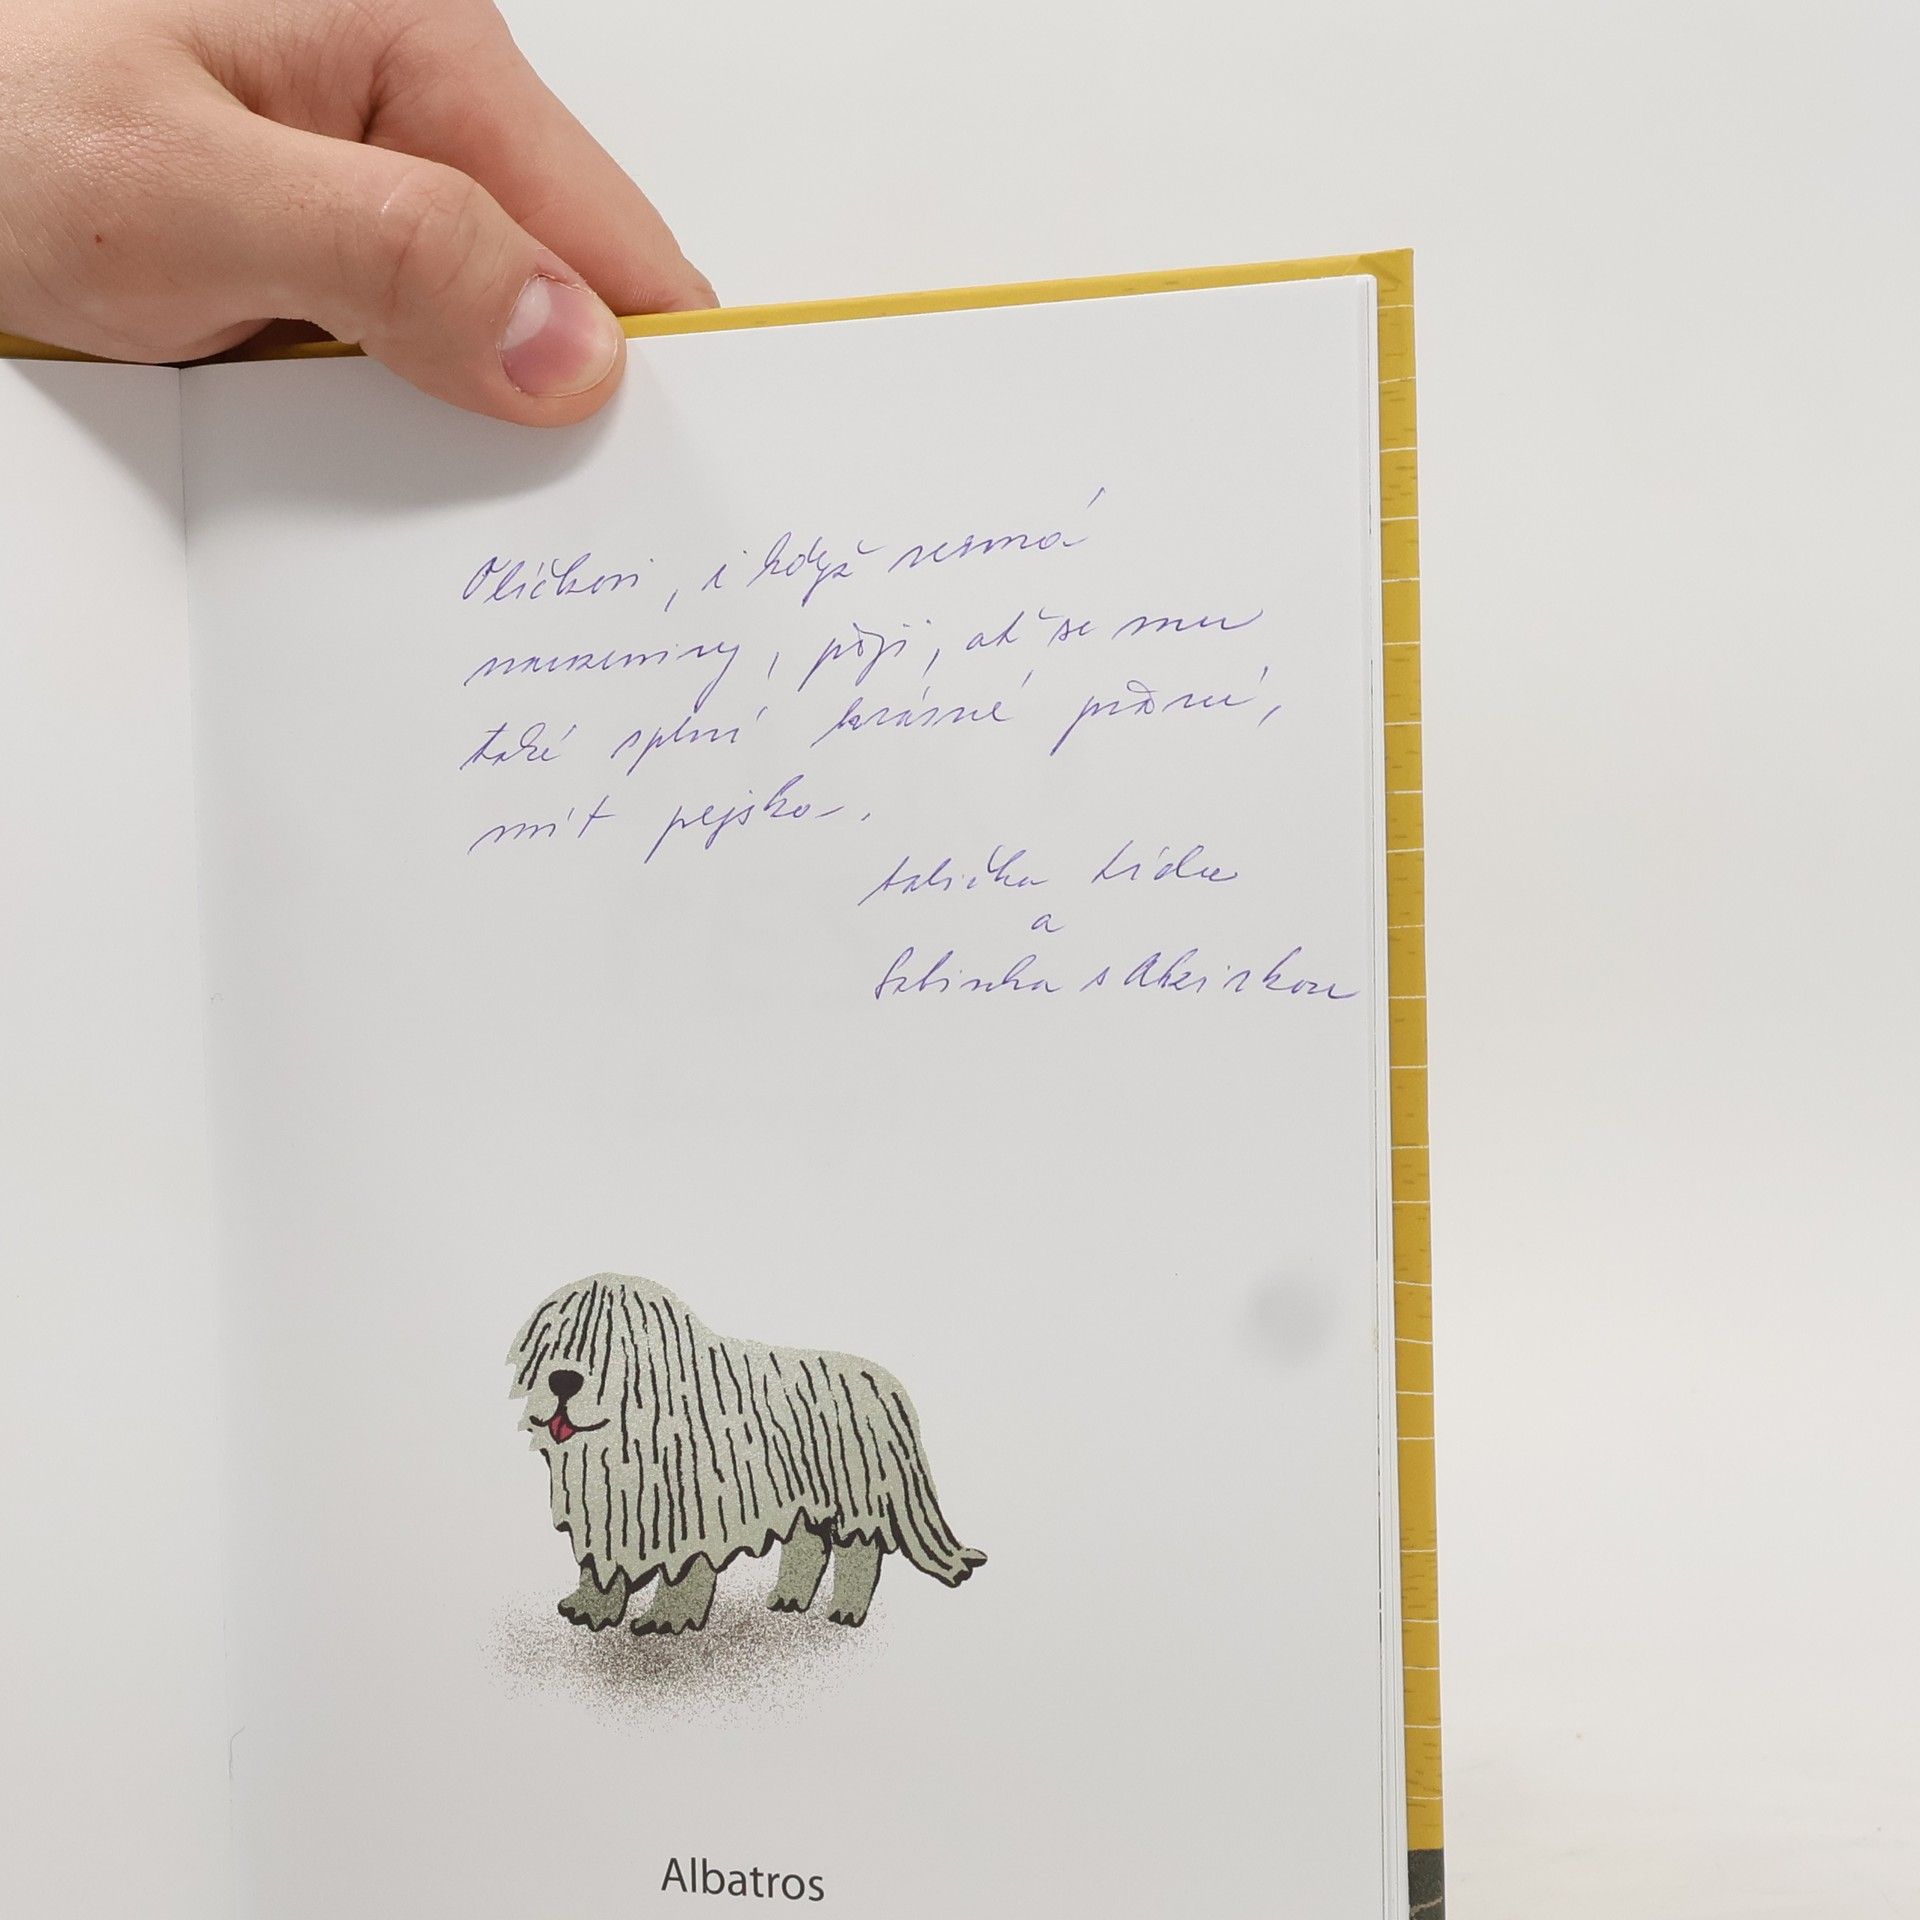 Olíčkovi, i když nemá
narozeniny, přeji, ať se mu
také splní krásné přání,
mít pejska.
babička Lída
a
Sabinka s
Albatros